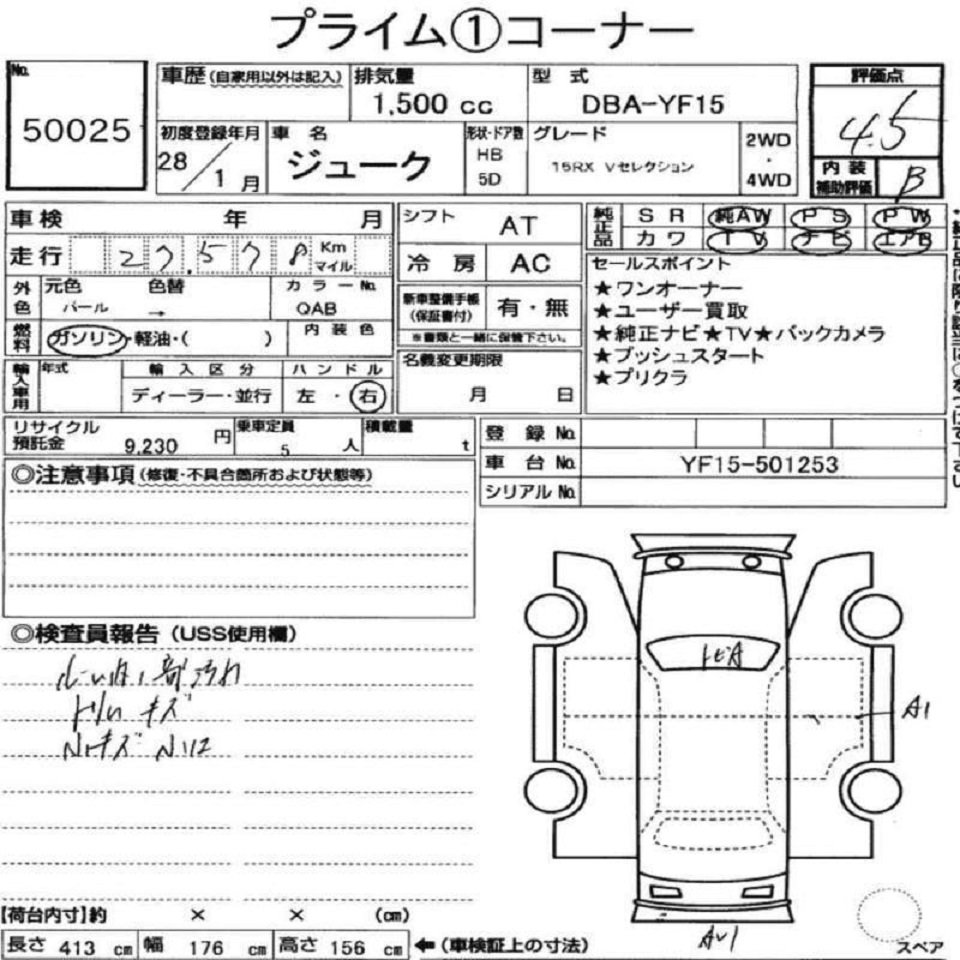 プライム①コーナー
No.
50025
車歴(自家用以外は記入)
排気量
1,500 cc
型 式
DBA-YF15
評価点
4.5
初度登録年月
28/1月
車 名
ジューク
形状・ドア数
HB
5D
グレード
15RX Vセレクション
2WD
・
4WD
内 装
補助評価
B
車検 年 月
走行 27,578 Km
マイル
外色
元色 色替
パール →
カラーNo.
QAB
燃料
ガソリン・軽油・( )
内 装 色
輸入車用
年式
輸 入 区 分
ディーラー・並行
ハ ン ド ル
左 ・ 右
シフト AT
冷 房 AC
新車整備手帳
(保証書付)
有・無
※書類と一緒に保管下さい。
名義変更期限
月 日
純正品
S R 純AW P S P W
カワ T V ナビ エアB
セールスポイント
★ワンオーナー
★ユーザー買取
★純正ナビ★TV★バックカメラ
★プッシュスタート
★プリクラ
リサイクル
預託金 9,230 円
乗車定員
5 人
積載量
t
登 録 No.
車 台 No. YF15-501253
シリアル No.
◎注意事項(修復・不具合箇所および状態等)
◎検査員報告(USS使用欄)
キズ
A
A1
【荷台内寸】約 × × (cm)
長さ 413 cm 幅 176 cm 高さ 156 cm ←(車検証上の寸法)
スペア